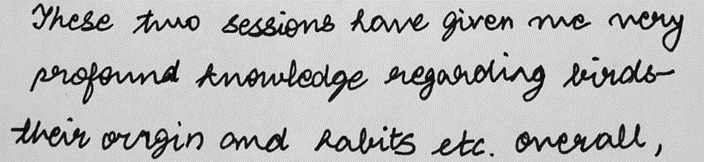 These two sessions have given me very
profound knowledge regarding birds-
their origin and habits etc. overall,